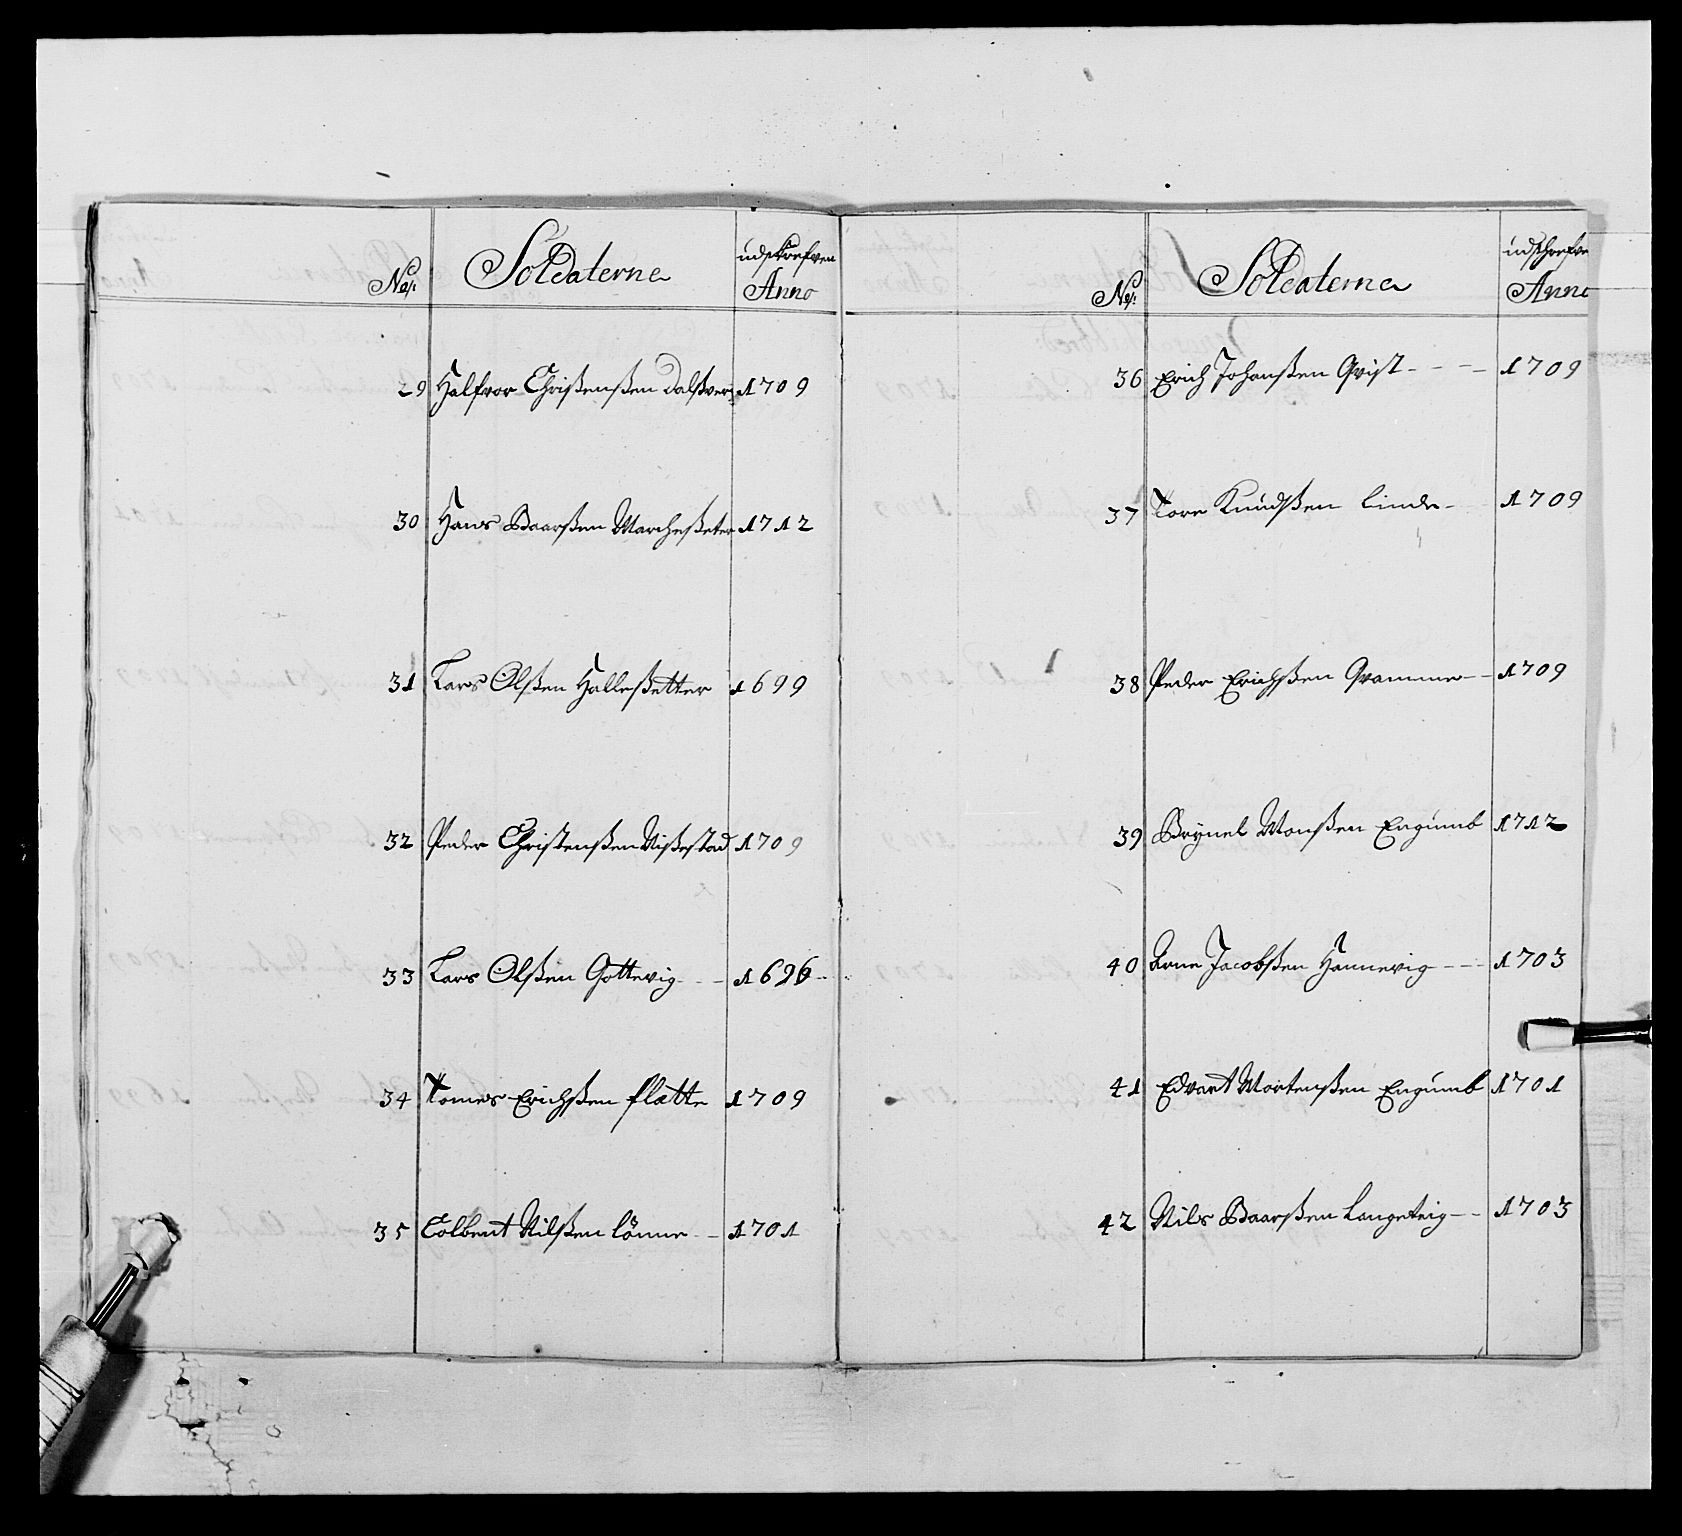 No: Soldaterne udskrefven Anno
29 Halfvor Christenßen Dalßver 1709
30 Hans Baarßen Marcheßeter 1712
31 Lars Olßen Halleßetter 1699
32 Peder Christenßen Nißestad 1709
33 Lars Olßen Gottevig - - - 1696 -
34 Tomes Erichßen flatte 1709
35 Colbent Nilßen lönne - - 1701
No: Soldaterne udschrefve Anno
36 Erich Johanßen Qvist - - - - 1709
37 Tore Knudßen Linde - - 1709
38 Peder Erichßen Qvamme - - 1709
39 Brÿnel Monßen Engumb 1712
40 Arne Jacobßen Hannevig - - - 1703
41 Edvart Mortenßen Engumb 1701
42 Nils Baarßen Langeteig - - 1703